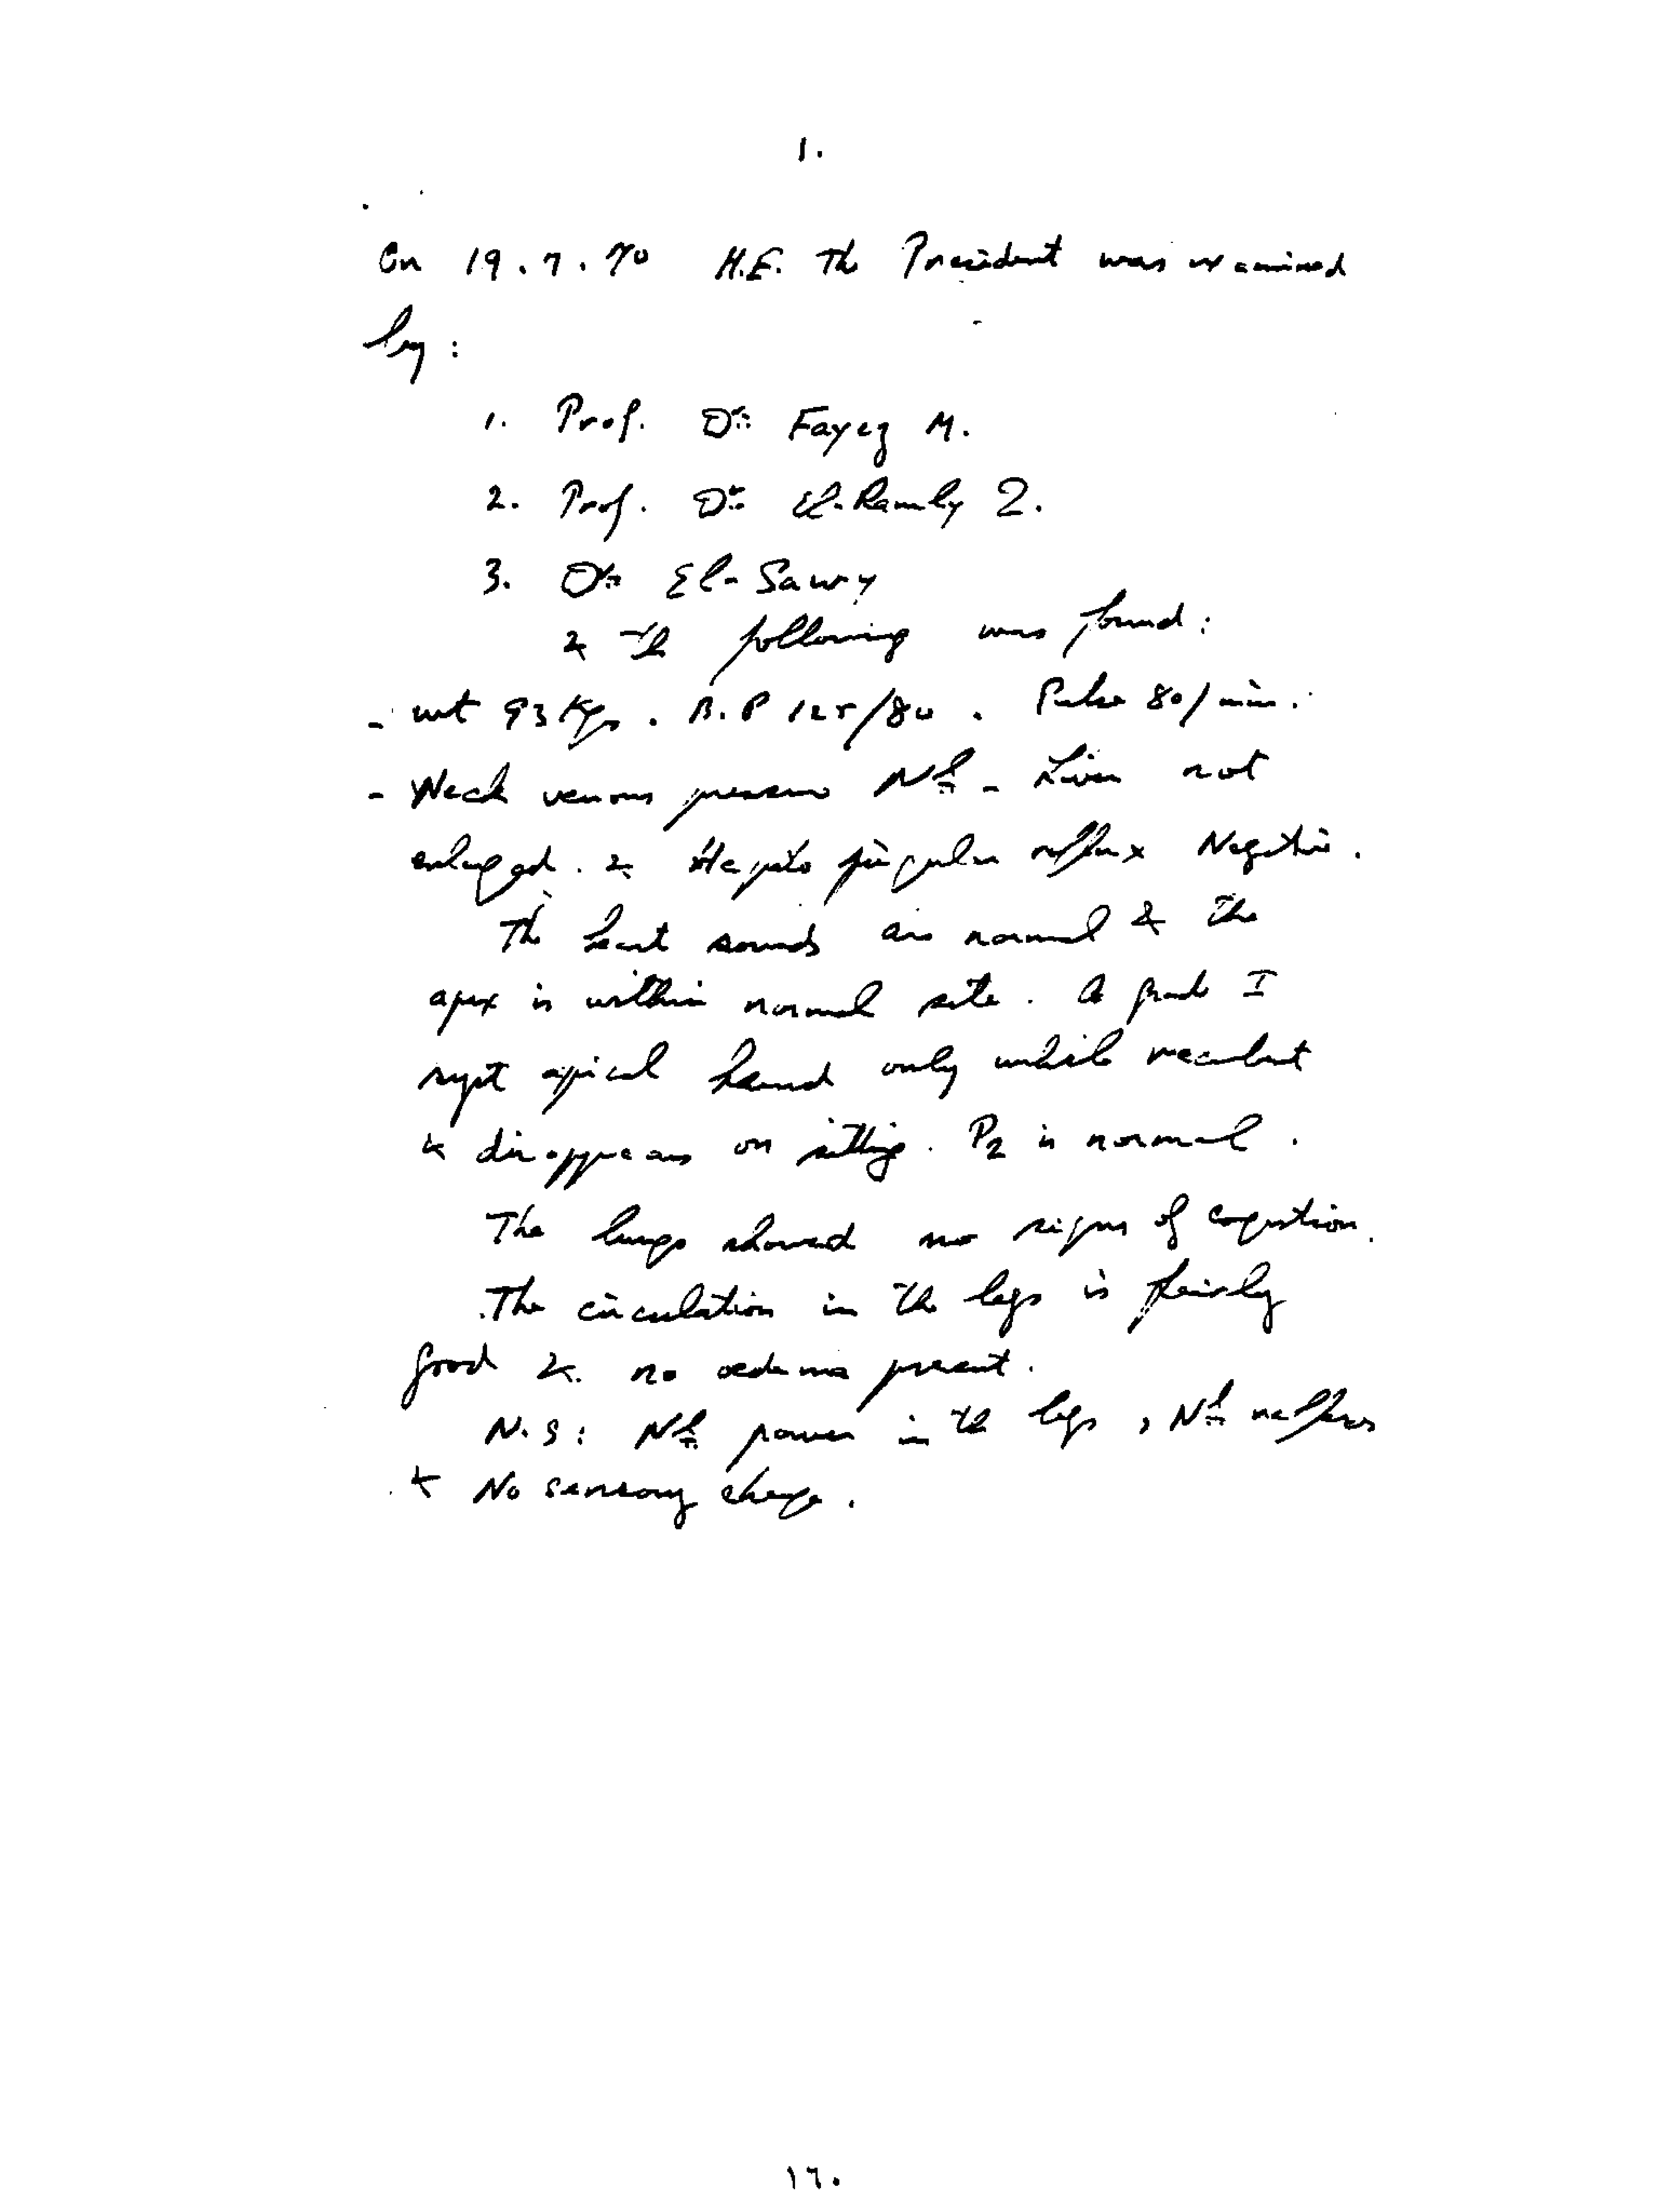 1.
On 19.7.70 H.E. The President was examined
by:
1. Prof. Dr. Fayez M.
2. Prof. Dr. El-Ramly Z.
3. Dr. El-Sawy
& the following was found:
- wt 93 Kgs. B.P 125/80. Pulse 80/min.
- Neck venous pressure Nl - Liver not
enlarged. & Hepato jugular reflux Negative.
The heart sounds are normal & the
apex is within normal site. A grade I
syst apical heard only while recumbent
& disappears on sitting. P2 is normal.
The lungs showed no signs of congestion.
The circulation in the legs is fairly
good &. no oedema present.
N.S: Nl power in the legs, Nl reflexes
& No sensory change.
١٦٠